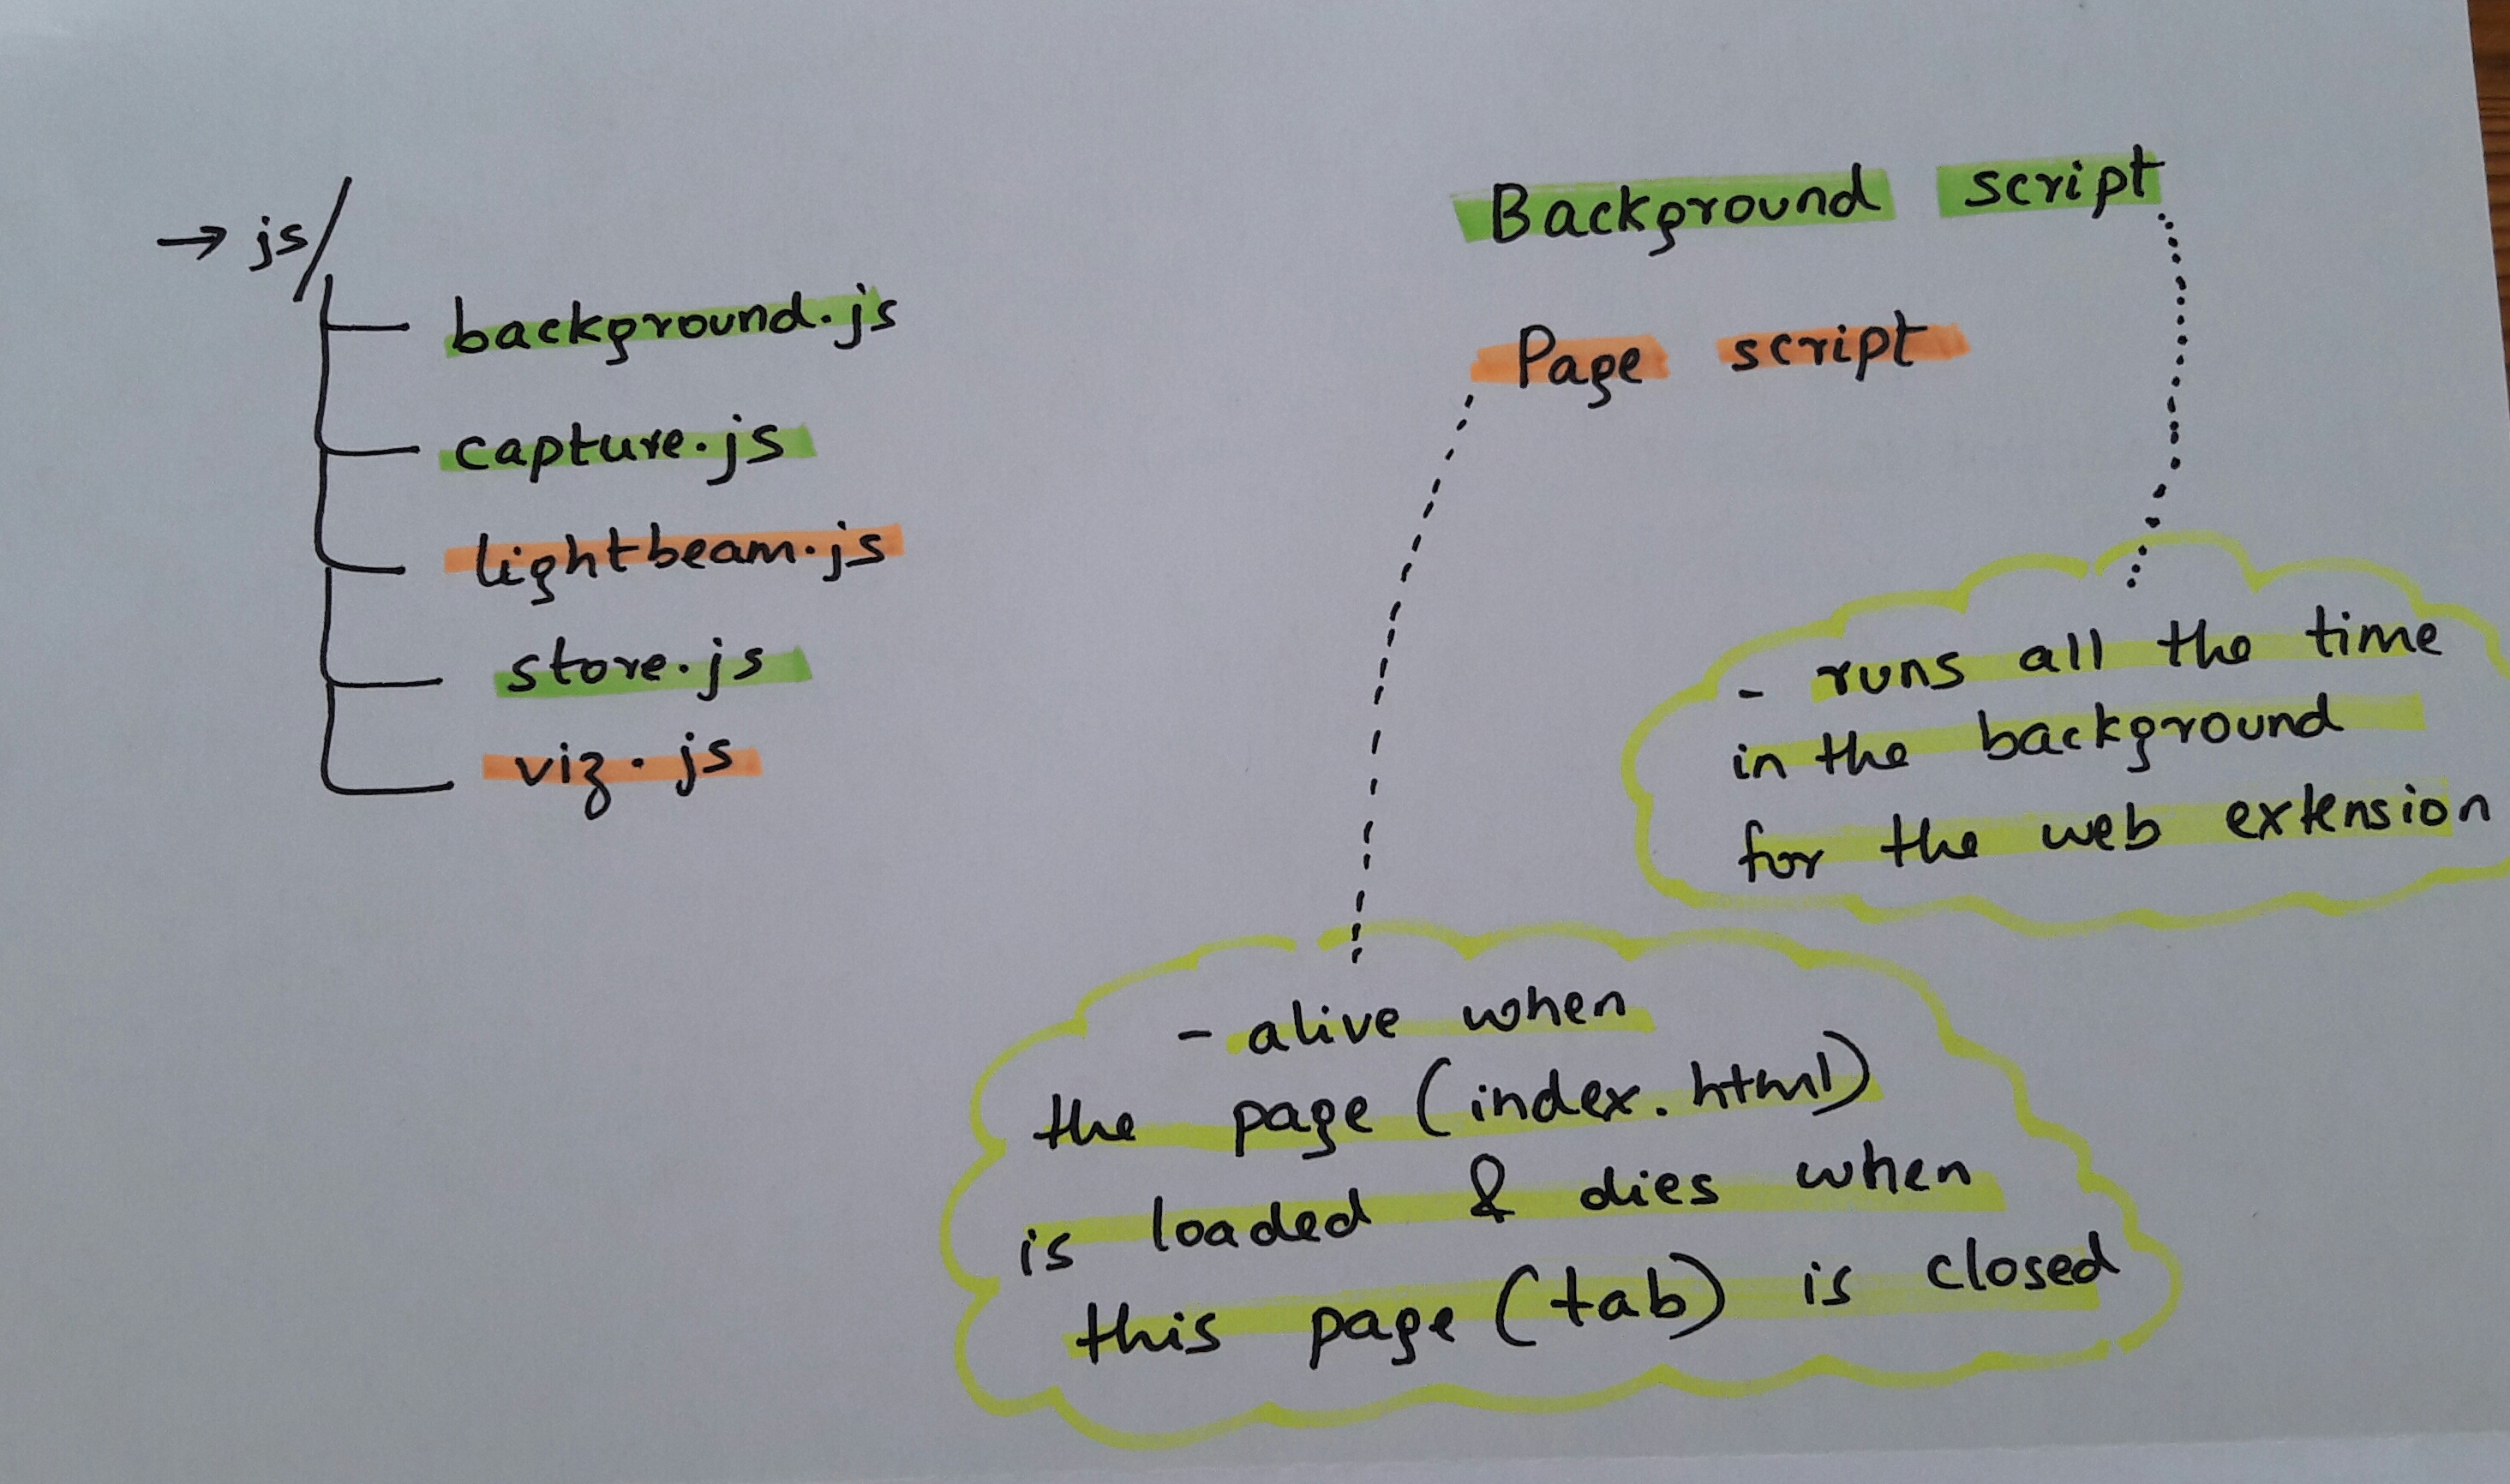 → js/
background.js
capture.js
lightbeam.js
store.js
viz.js
Background script
Page script
- runs all the time
in the background
for the web extension
- alive when
the page (index.html)
is loaded & dies when
this page (tab) is closed